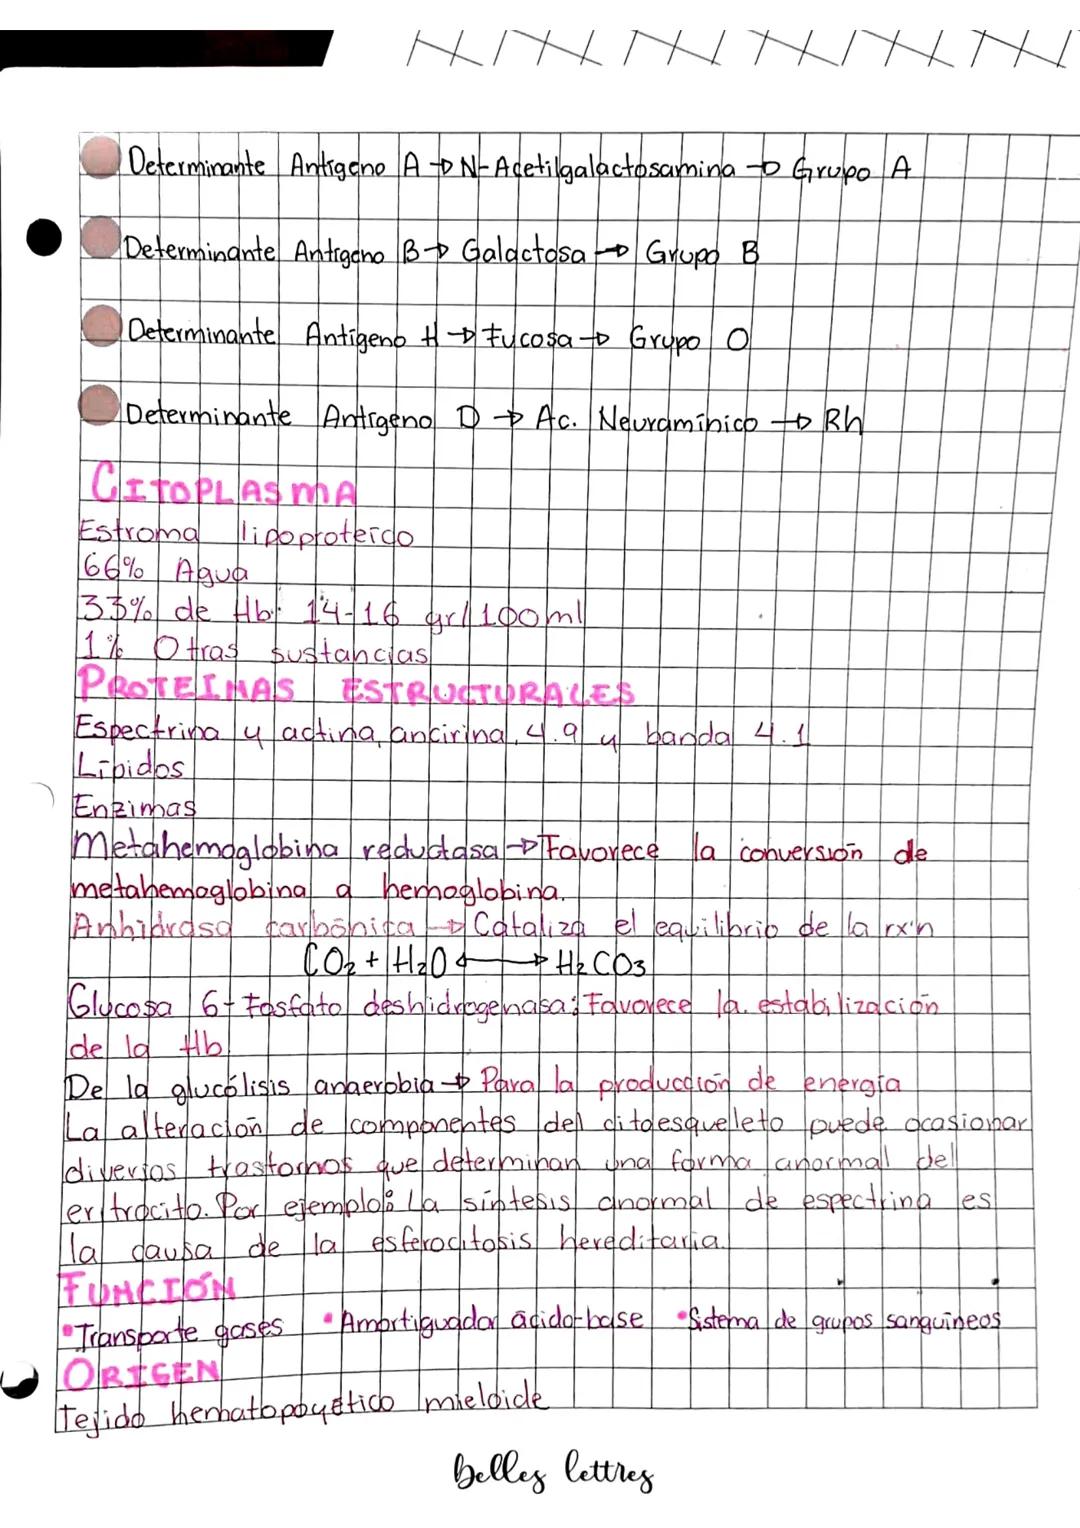 Determinante Antigeno A → N-Acetilgalactosamina → Grupo A
Determinante Antigeno B → Galactosa → Grupo B
Determinante Antigeno H → Fucosa → Grupo O
Determinante Antigeno D → Ac. Neuramínico → Rh
CITOPLASMA
Estroma lipoproteico
66% Agua
33% de Hb: 14-16 gr/100ml
1% Otras sustancias
PROTEINAS ESTRUCTURALES
Espectrina y actina, ancirina, 4.9 y banda 4.1
Lípidos
Enzimas
Metahemoglobina reductasa → Favorece la conversión de
metahemoglobina a hemoglobina.
Anhidrasa carbónica → Cataliza el equilibrio de la rx'n
CO₂ + H₂O ↔ H₂CO₃
Glucosa 6-Fosfato deshidrogenasa: Favorece la estabilización
de la Hb
De la glucólisis anaerobia → Para la producción de energía
La alteración de componentes del citoesqueleto puede ocasionar
diversos trastornos que determinan una forma anormal del
eritrocito. Por ejemplo: La síntesis anormal de espectrina es
la causa de la esferocitosis hereditaria.
FUNCIÓN
•Transporte gases •Amortiguador ácido-base •Sistema de grupos sanguíneos
ORIGEN
Tejido hematopoyético mieloide
belles lettres